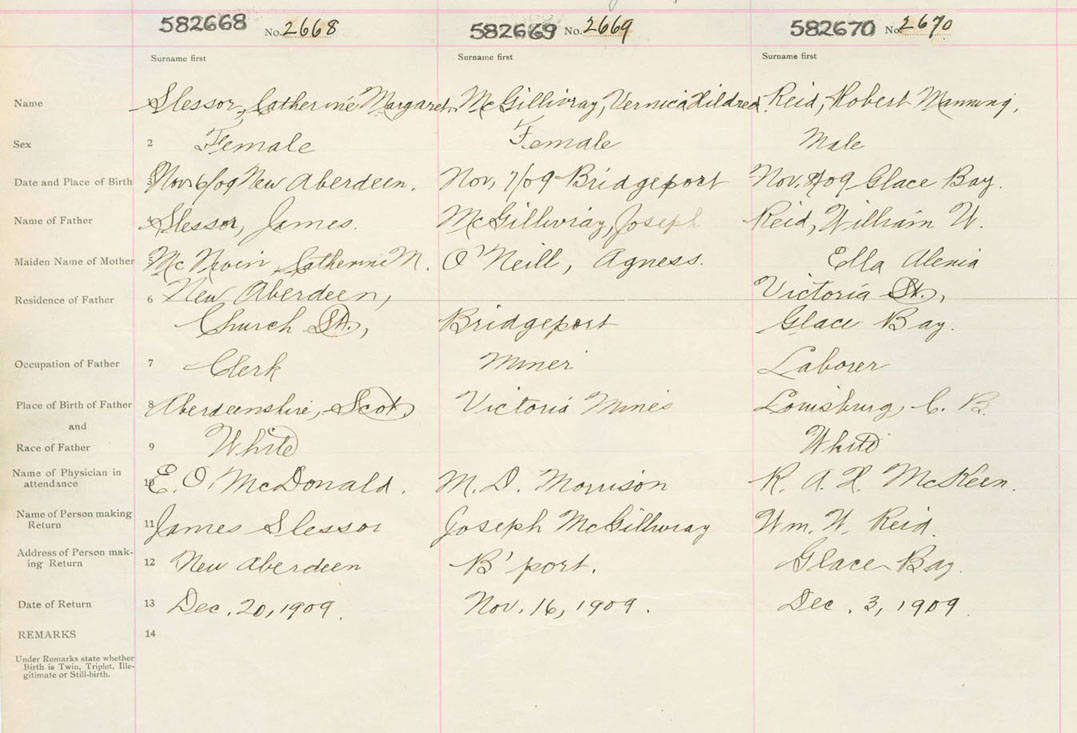 582668 No. 2668 582669 No. 2669 582670 No. 2670
Surname first Surname first Surname first
Name 1 Slessor, Catherine Margaret. McGillivray, Vernica Hildred Reid, Robert Manning.
Sex 2 Female Female Male
Date and Place of Birth 3 Nov 6/09 New Aberdeen. Nov, 7/09 Bridgeport Nov. 8/09 Glace Bay.
Name of Father 4 Slessor, James. McGillivray, Joseph Reid, William W.
Maiden Name of Mother 5 McNevin Catherine M. O'Neill, Agness. Ella Alenia
Residence of Father 6 New Aberdeen, Victoria St.,
Church St., Bridgeport Glace Bay.
Occupation of Father 7 Clerk Miner Laborer
Place of Birth of Father 8 Aberdeenshire, Scot. Victoria Mines Louisburg, C. B.
and
Race of Father 9 White White
Name of Physician in
attendance 10 E. O. McDonald. M. D. Morrison R. A. H. McKeen.
Name of Person making
Return 11 James Slessor Joseph McGillivray Wm. W. Reid.
Address of Person mak-
ing Return 12 New Aberdeen B'port. Glace Bay.
Date of Return 13 Dec. 20, 1909. Nov. 16, 1909. Dec. 3, 1909.
REMARKS 14
Under Remarks state whether
Birth is Twin, Triplet, Ille-
gitimate or Still-birth.